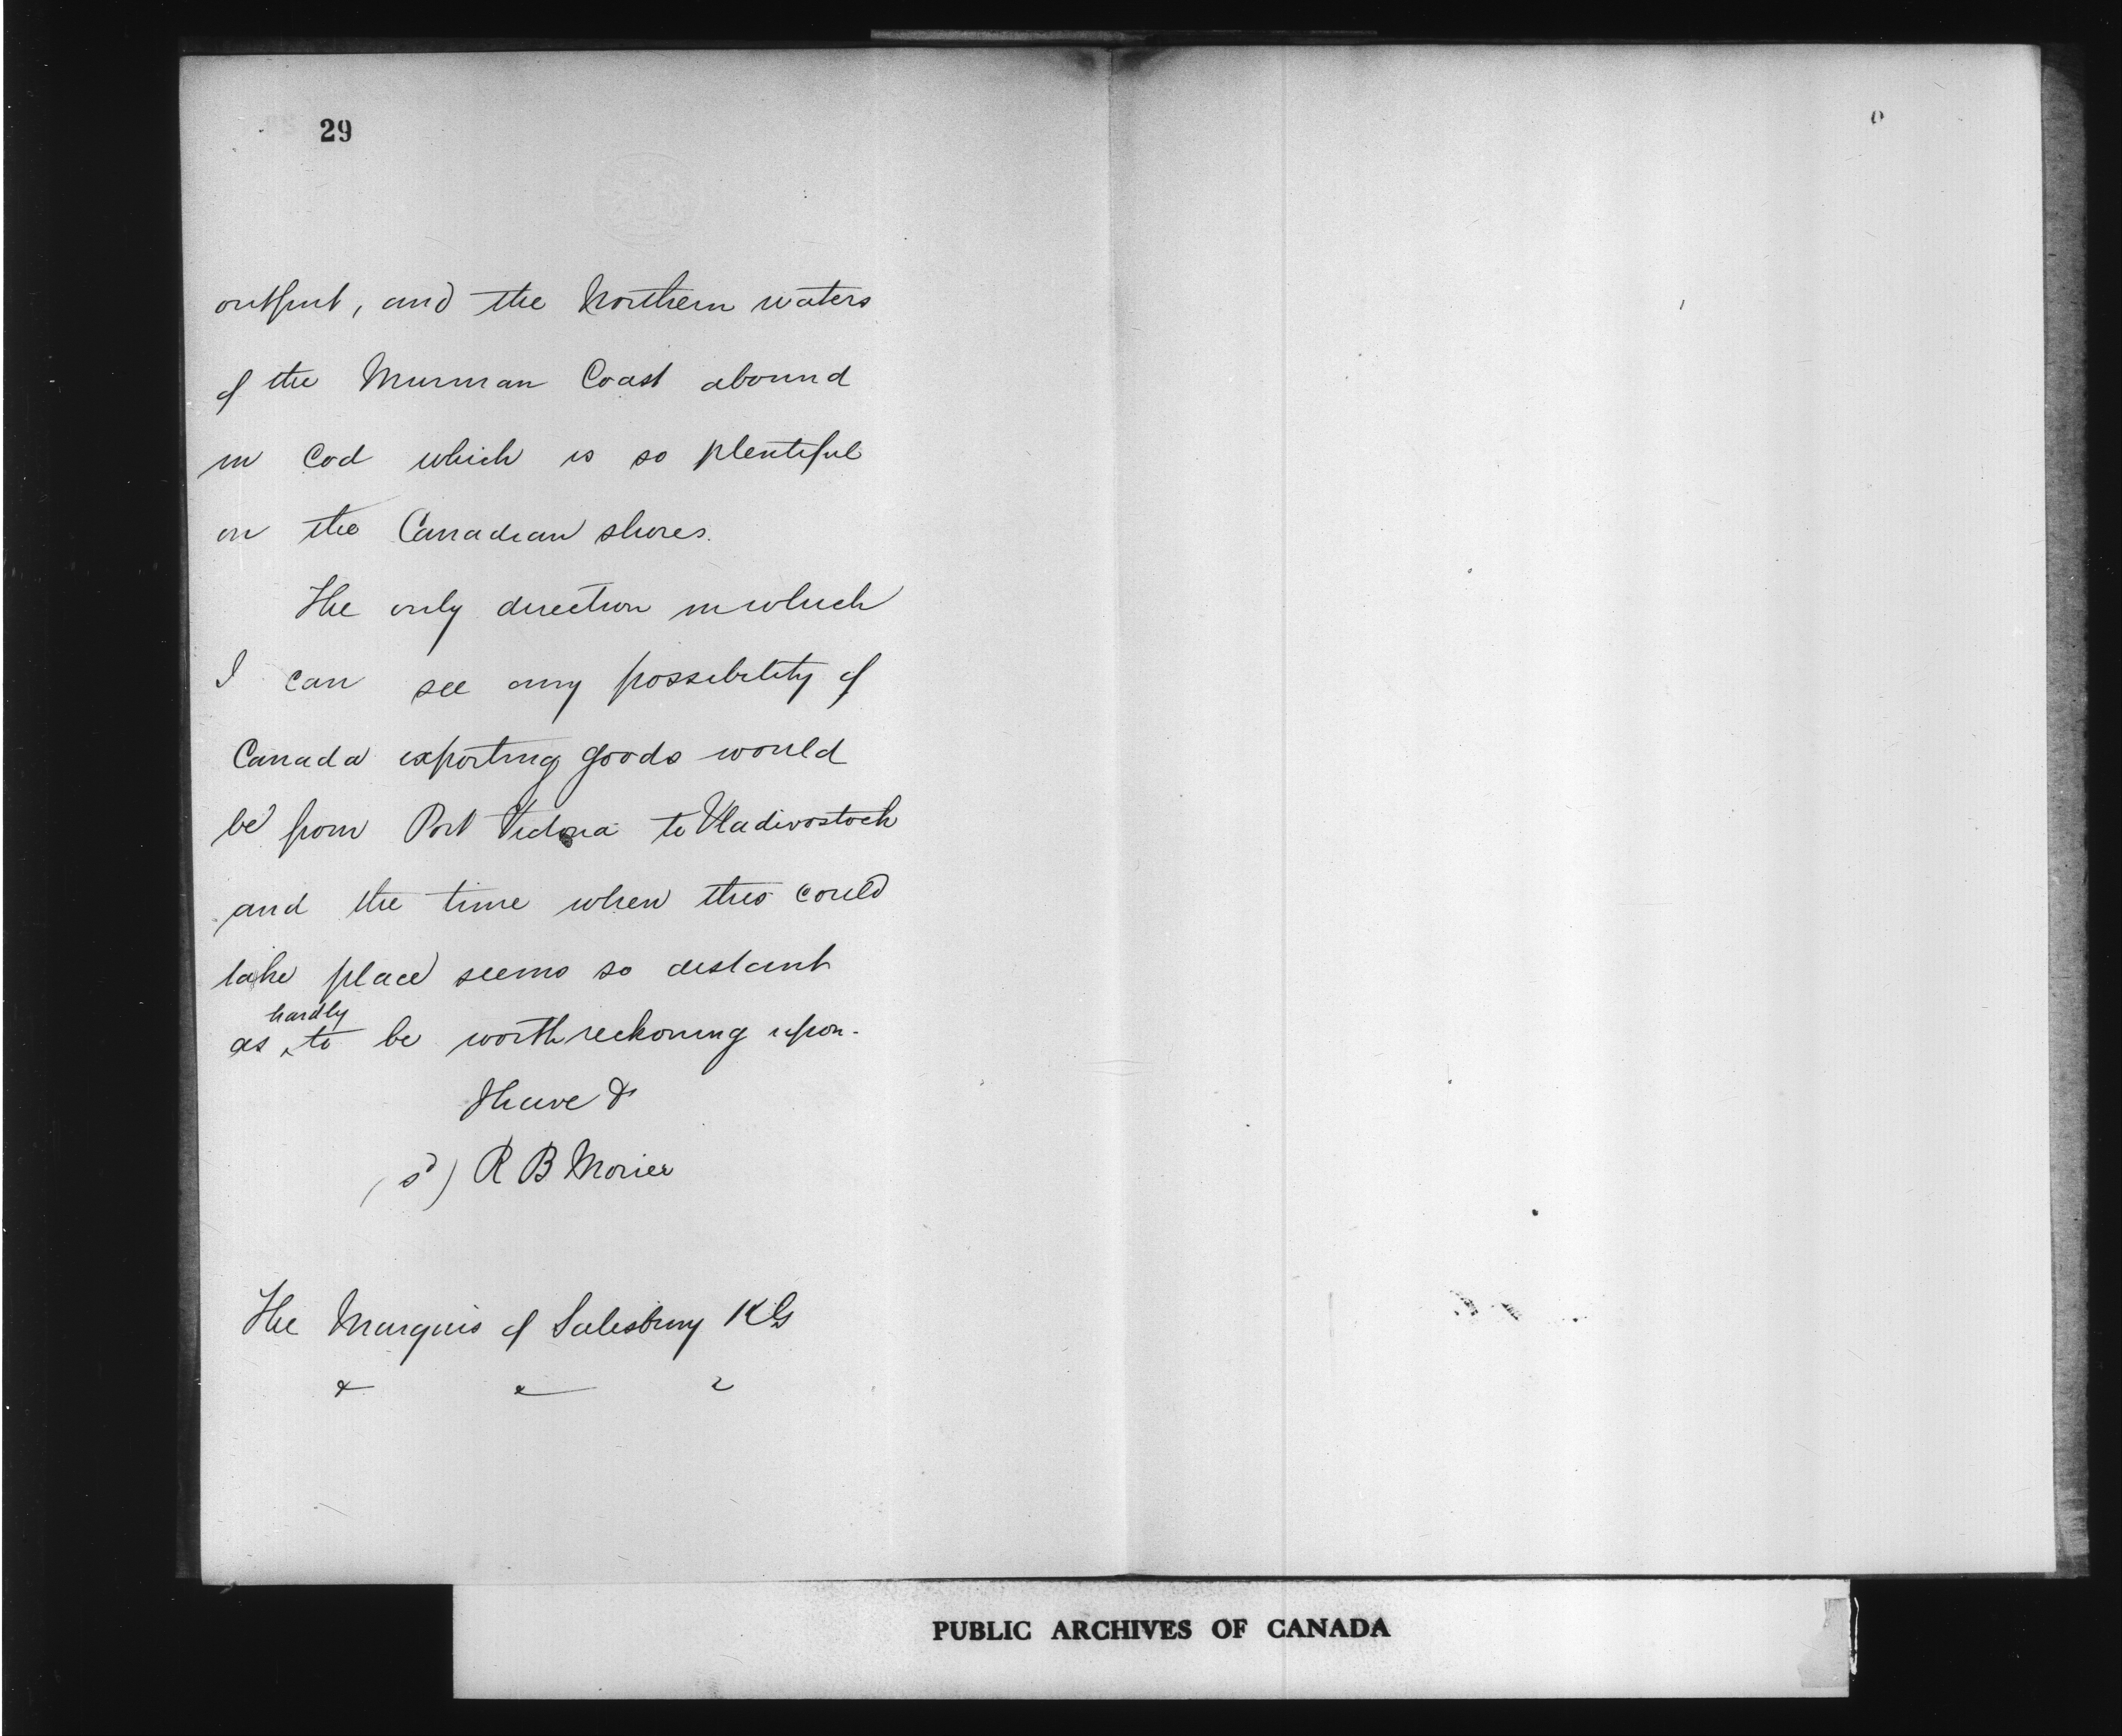 29
output, and the Northern waters
of the Murman Coast abound
in Cod which is so plentiful
on the Canadian shores.
The only direction in which
I can see any possibility of
Canada exporting goods would
be from Port Victoria to Vladivostock
and the time when this could
take place seems so distant
hardly
as ^ to be worth reckoning upon.
I have &
(sd) R B Morier
The Marquis of Salisbury KG
& & &
PUBLIC ARCHIVES OF CANADA